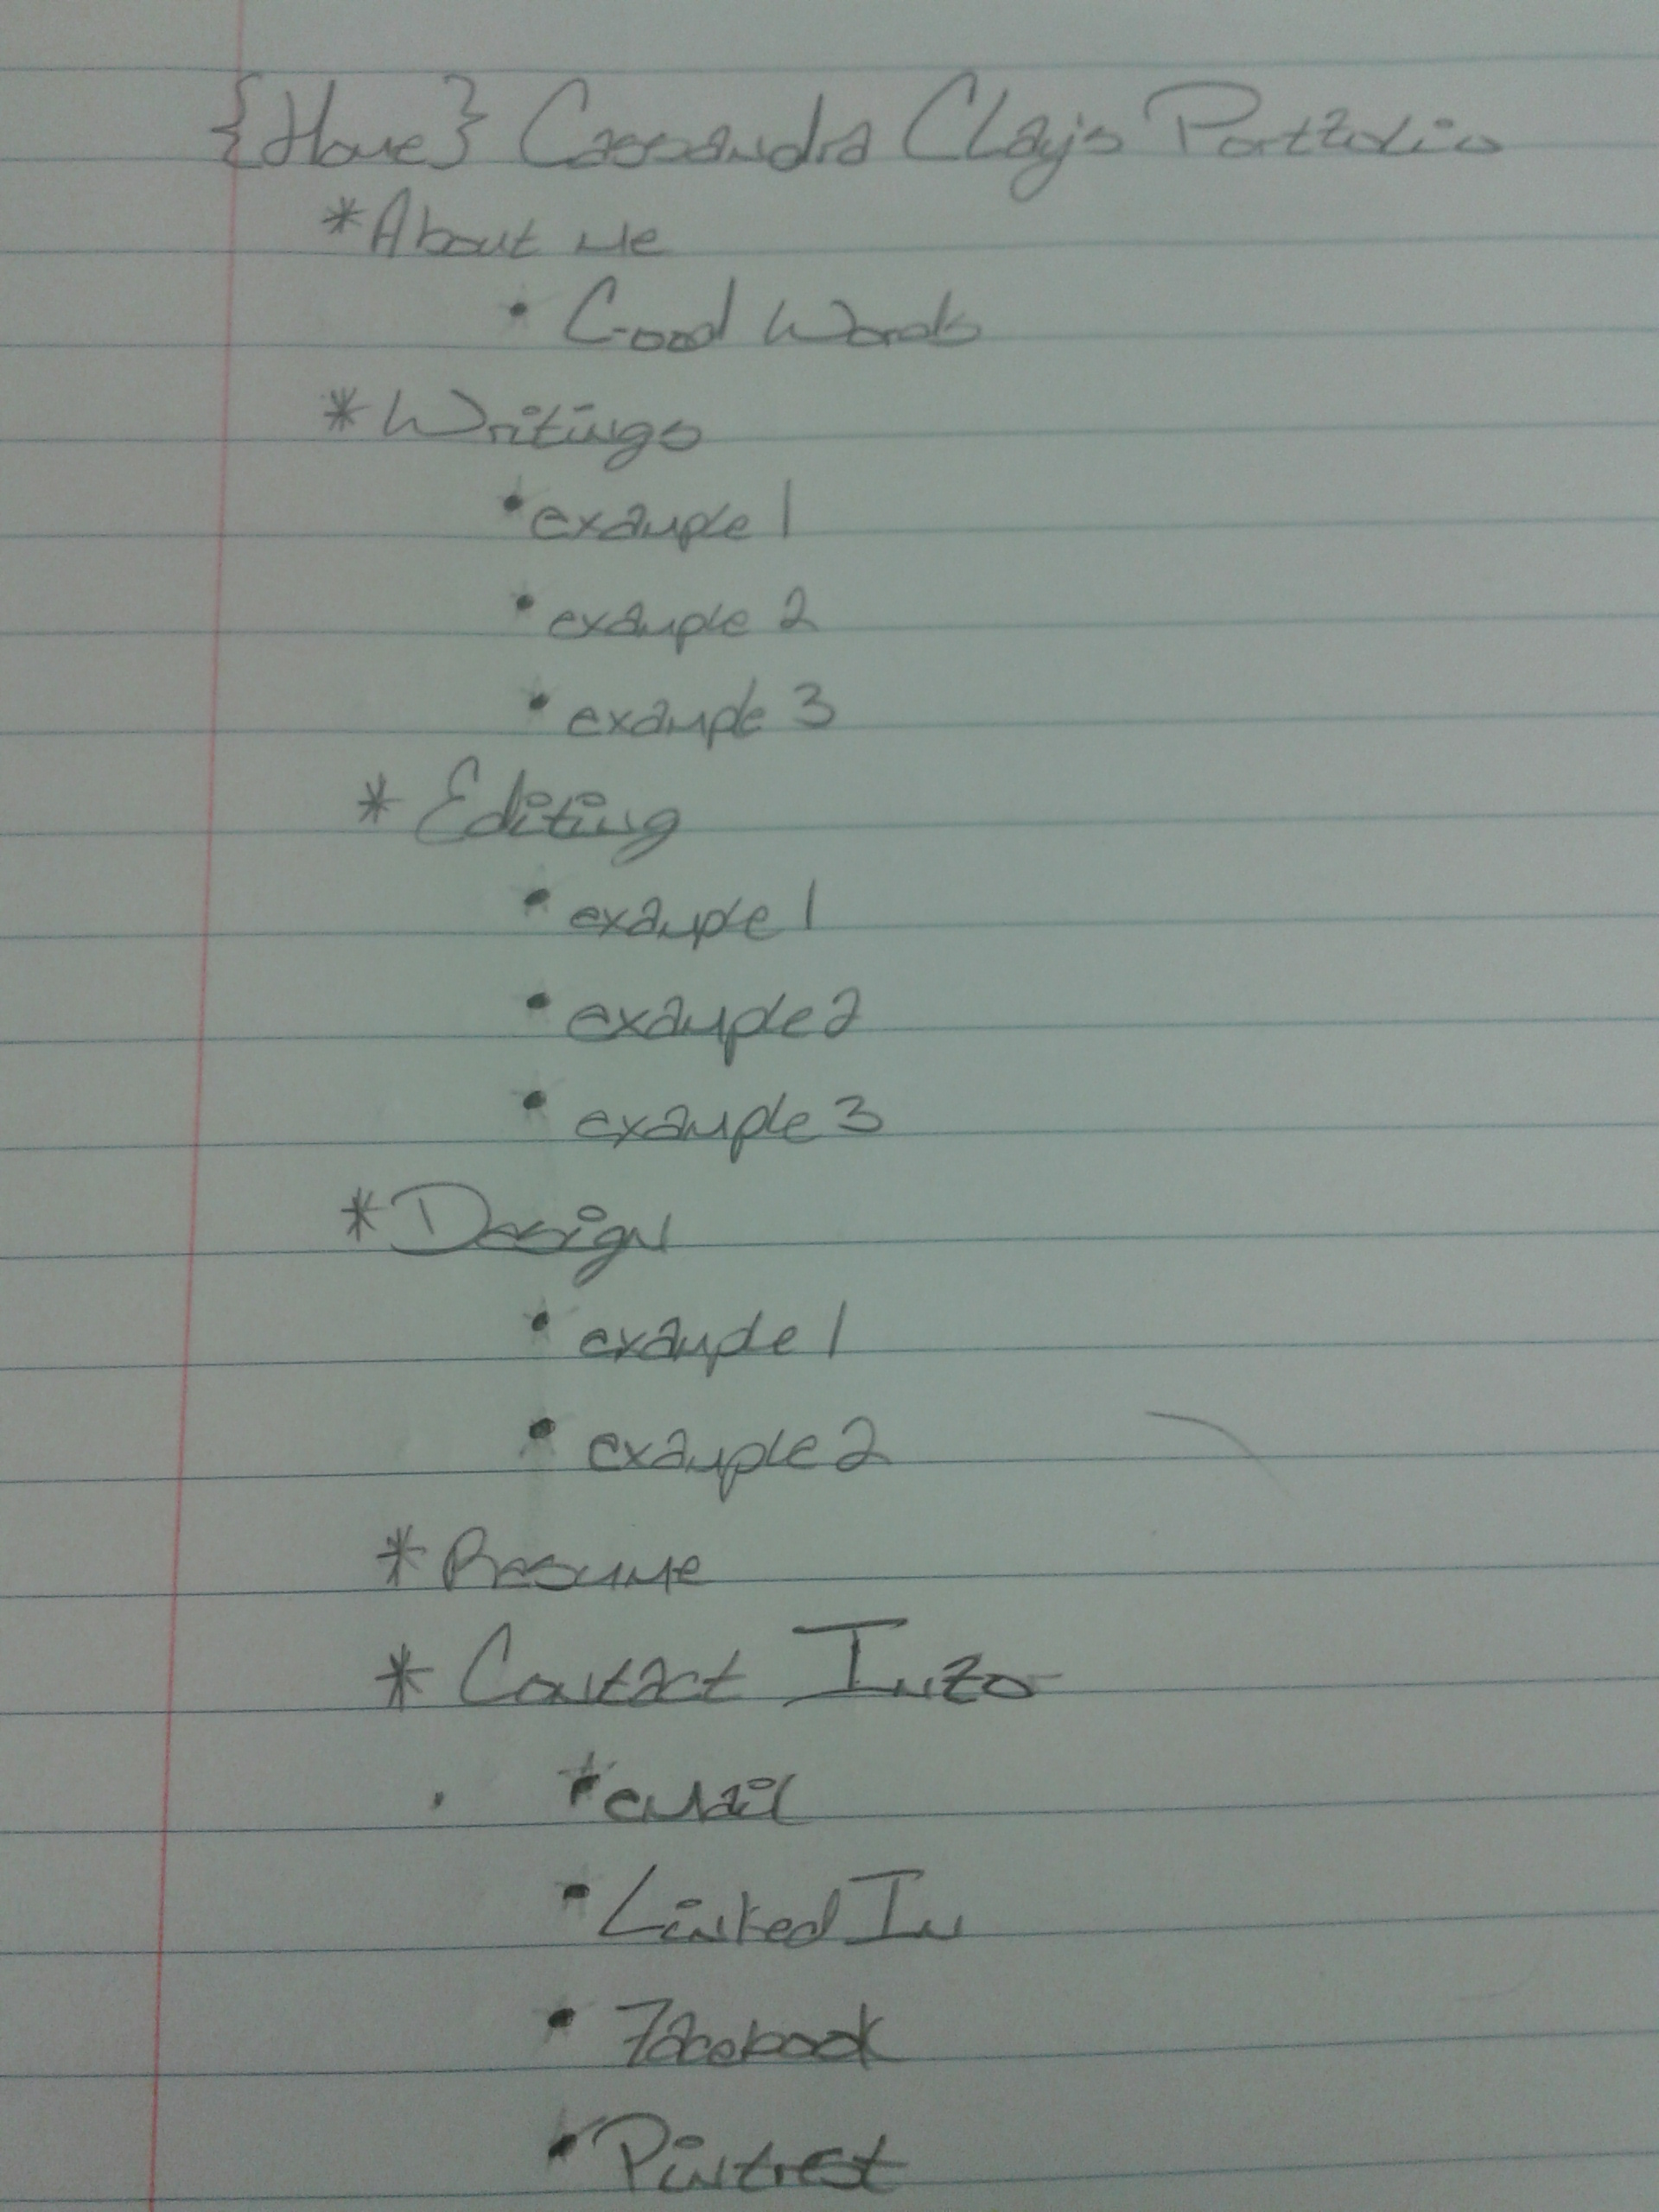 {Home} Cassandra Clay's Portfolio
* About Me
• Good Words
* Writings
• example 1
• example 2
• example 3
* Editing
• example 1
• example 2
• example 3
* Design
• example 1
• example 2
* Resume
* Contact Info
• email
• Linked In
• Facebook
• Pintrest